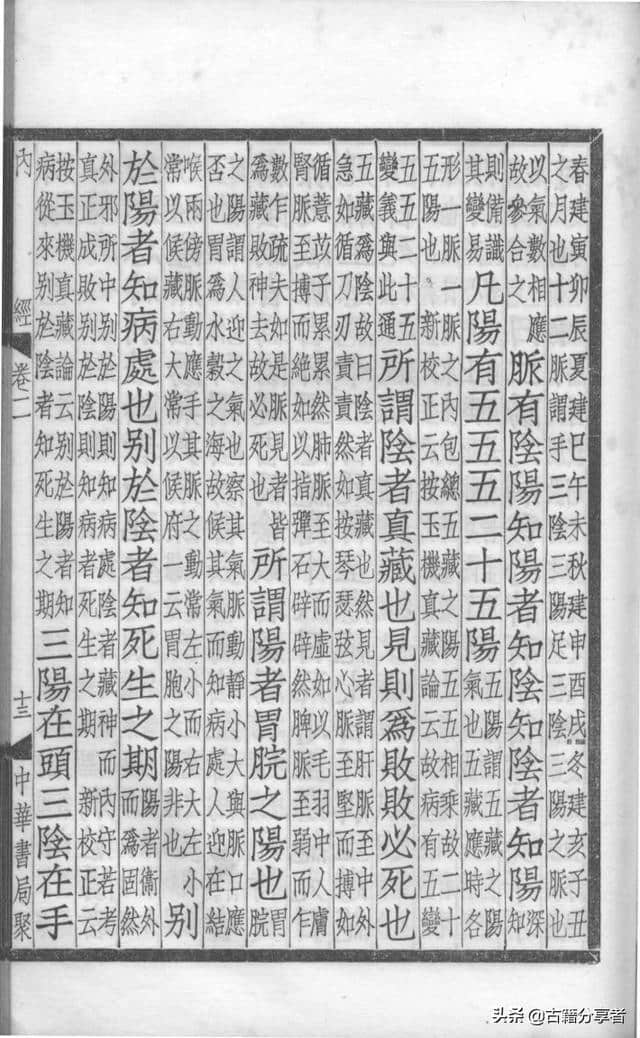 春建寅卯辰夏建巳午未秋建申酉戌冬建亥子丑
之月也十二脈謂手三陰三陽足三陰三陽之脈也
以氣數相應
故參合之
脈有陰陽知陽者知陰知陰者知陽
深
知
則備識
其變易
凡陽有五五五二十五陽
五陽謂五藏之陽
氣也五藏應時各
形一脈一脈之內包總五藏之陽五五相乘故二十
五陽也 新校正云按玉機真藏論云故病有五變
五五二十五
變義與此通
所謂陰者真藏也見則爲敗敗必死也
五藏爲陰故曰陰者真藏也然見者謂肝脈至中外
急如循刀刃責責然如按琴瑟弦心脈至堅而搏如
循薏苡子累累然肺脈至大而虛如以毛羽中人膚
腎脈至搏而絕如以指彈石辟辟然脾脈至弱而乍
數乍疏夫如是脈見者皆
爲藏敗神去故必死也
所謂陽者胃脘之陽也
胃
脘
之陽謂人迎之氣也察其氣脈動靜小大與脈口應
否也胃爲水穀之海故候其氣而知病處人迎在結
喉兩傍脈動應手其脈之動常左小而右大左小
常以候藏右大常以候府一云胃胞之陽非也
別
於陽者知病處也別於陰者知死生之期
陽者衞外
而爲固然
外邪所中別於陽則知病處陰者藏神而內守若考
真正成敗別於陰則知病者死生之期 新校正云
按玉機真藏論云別於陽者知
病從來別於陰者知死生之期
三陽在頭三陰在手
內經 卷二 十三 中華書局聚
头条 @古籍分享者